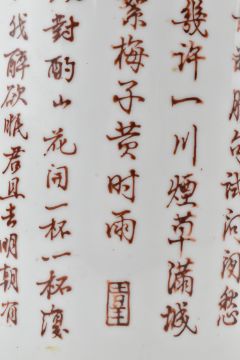 試问閑愁
幾许一川煙草滿城
絮梅子黄时雨
對酌山花開一杯一杯復
我醉欲眠君且去明朝有